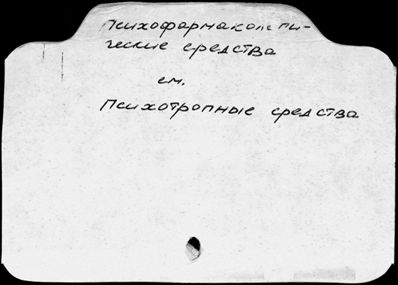 Психофармакологи-
ческие средства
см.
Психотропные средства